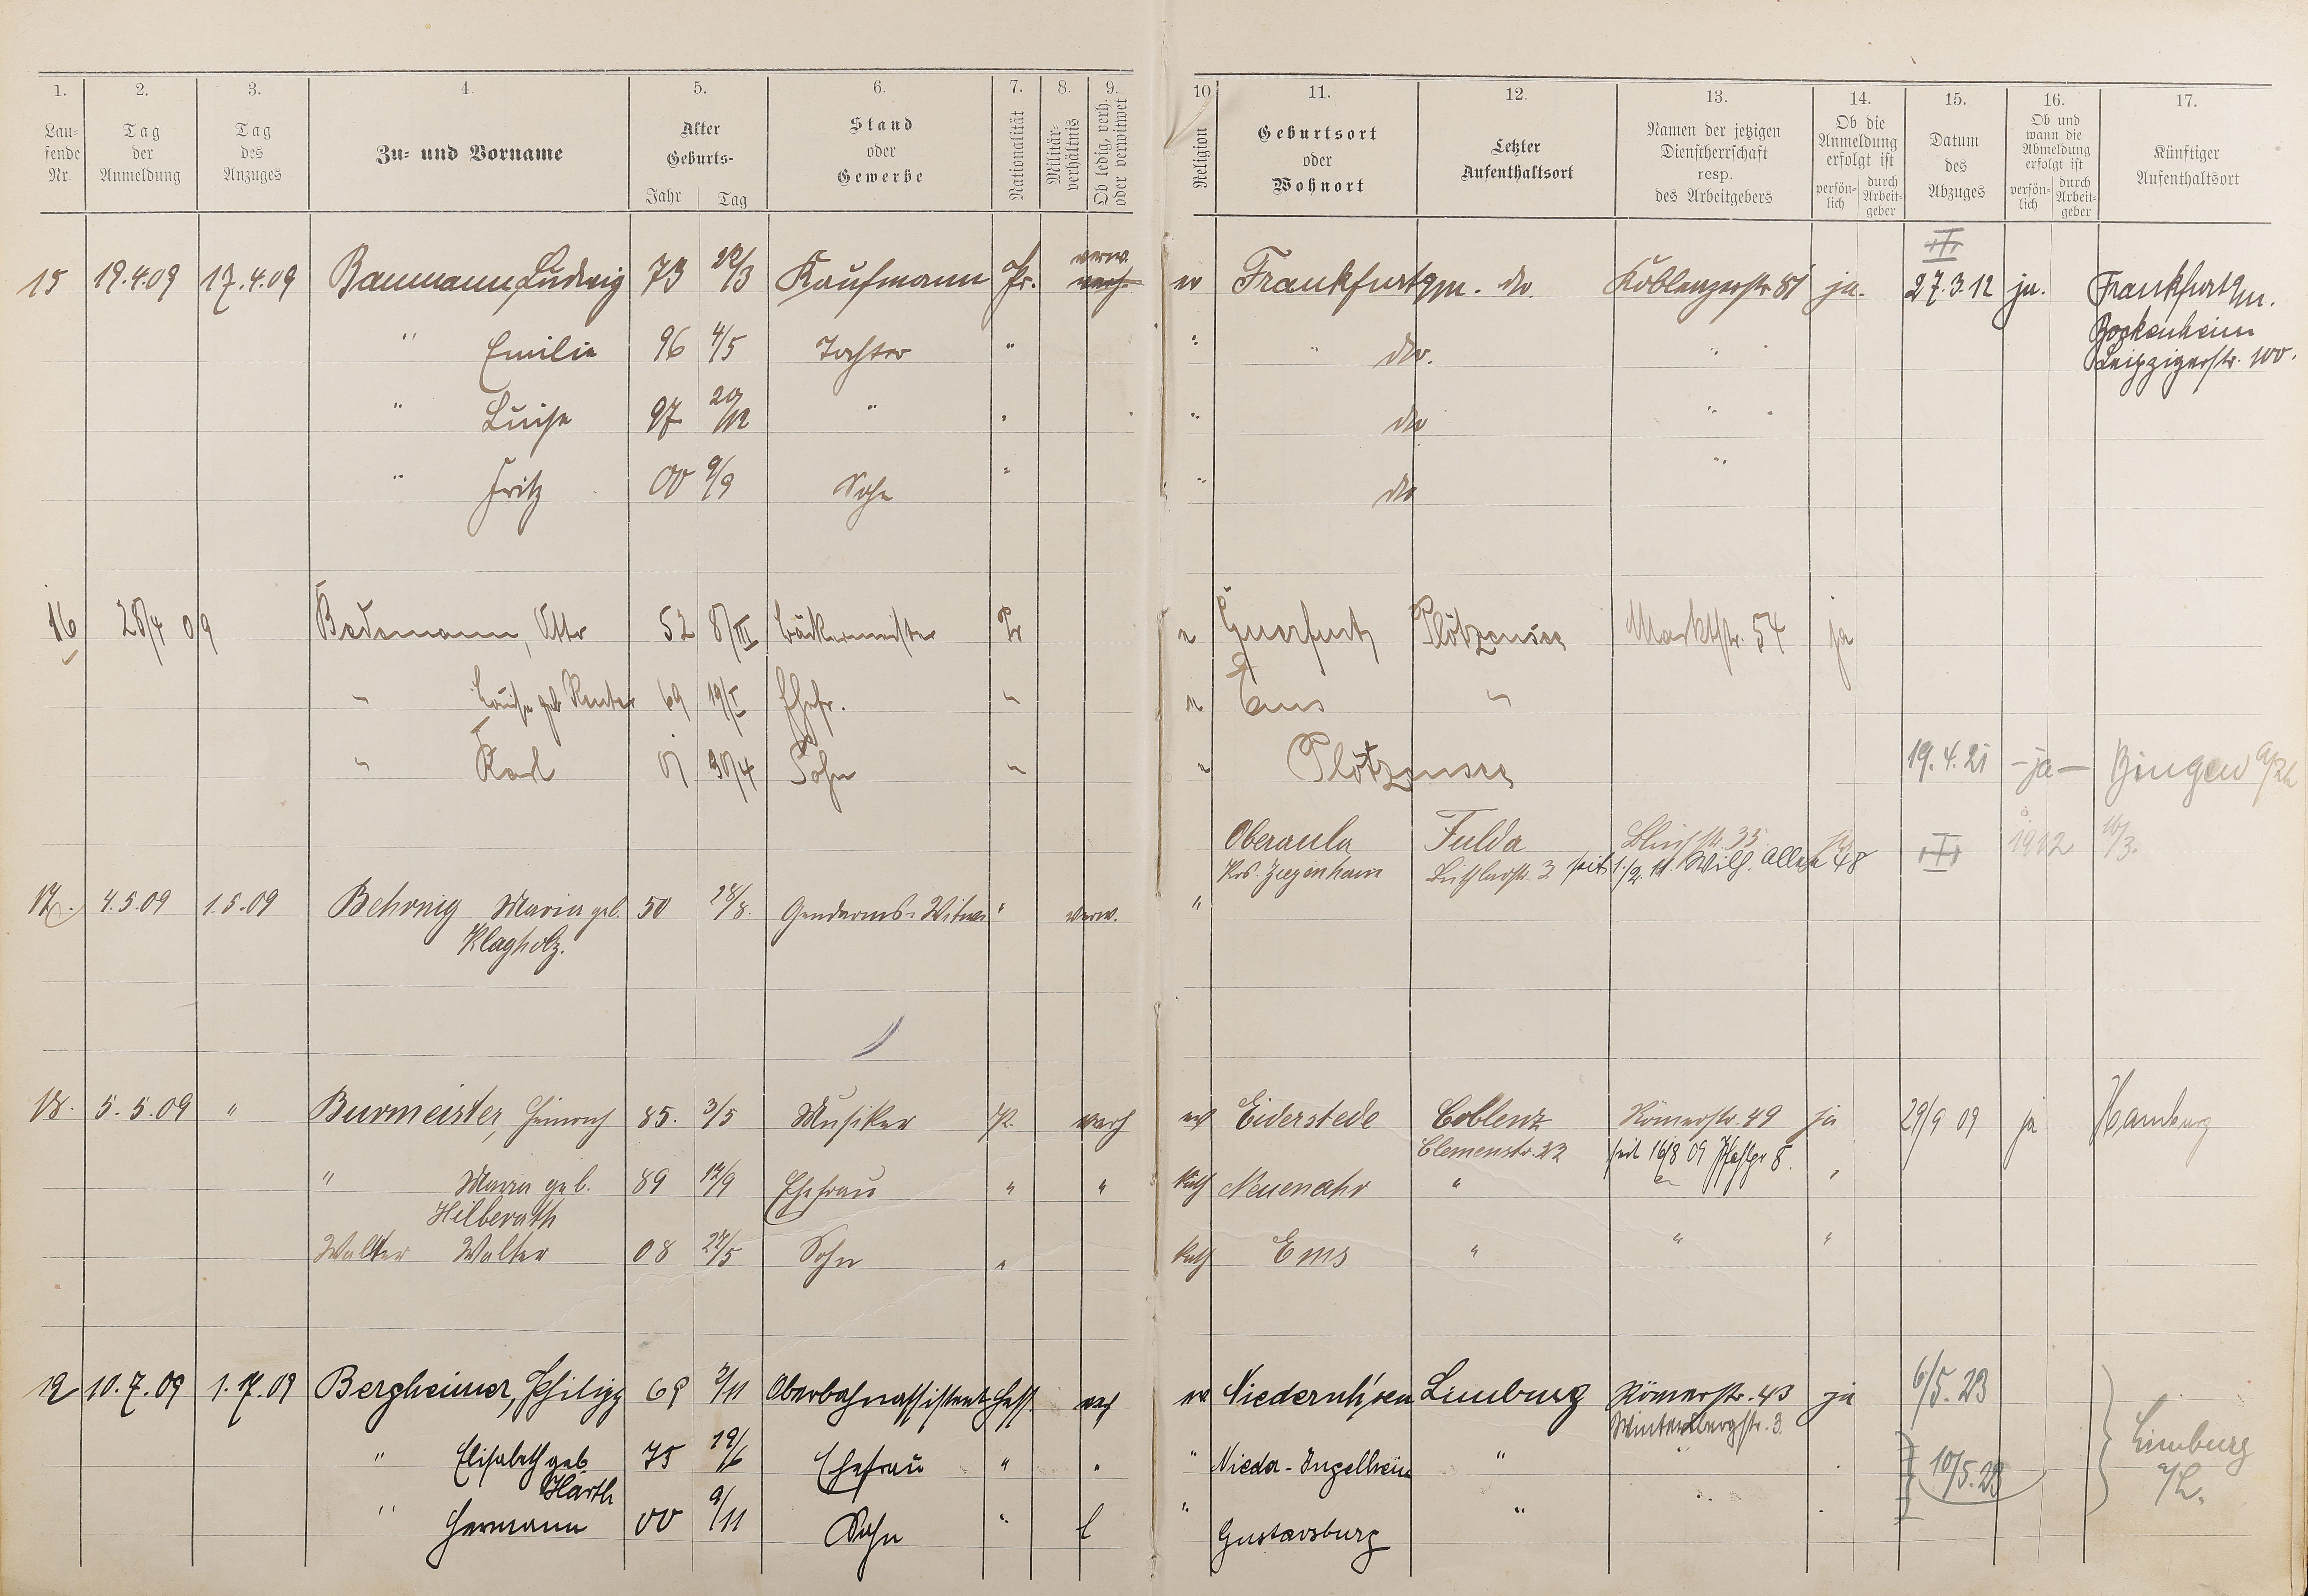 1. 2. 3. 4. 5. 6. 7. 8. 9. 10 11. 12. 13. 14. 15. 16. 17.
Lau-
fende
Nr.
Tag
der
Anmeldung
Tag
des
Anzuges
Zu- und Vorname
Alter
Geburts-
Jahr Tag
Stand
oder
Gewerbe
Nationalität
Militär-
verhältnis
Ob ledig, verh.
oder verwitwet
Religion
Geburtsort
oder
Wohnort
Letzter
Aufenthaltsort
Namen der jetzigen
Dienstherrschaft
resp.
des Arbeitgebers
Ob die
Anmeldung
erfolgt ist
persön-
lich
durch
Arbeit-
geber
Datum
des
Abzuges
Ob und
wann die
Abmeldung
erfolgt ist
persön-
lich
durch
Arbeit-
geber
Künftiger
Aufenthaltsort
verw.
15 19.4.09 17.4.09 Baumann, Ludwig 73 /3 Kaufmann Pr. verh. ev Frankfurt a/m. do. Koblenzerstr. 81 ja. 27.3.12 ja. Frankfurt a/m.
Bockenheim
Leipzigerstr. 100.
" Emilie 96 4/5 Tochter " " " do. "
" Luise 97 29/12 " " " do "
" Fritz 00 9/9 Sohn " " do "
16 28/4 09 Bodemann, Otto 52 8/III Bäckermeister Pr " Querfurt Plötzensee Marktstr. 54 ja
" Louise geb Reuter 69 19/I Ehefr. " " Ems "
" Karl 30/4 Sohn " " Plötzensee 19.4.21 - ja - Bingen a/Rh
Oberaula Fulda 35 ja III 1912 16/3.
Krs. Ziegenhain 3 seit 1./2. 11. Wilh. Allee 48
17. 4.5.09 1.5.09 Behrnig Maria geb. 50 28/8. Gendarms-Witwe " verw. "
Klagholz.
18. 5.5.09 " Burmeister, Heinrich 85. 3/5 Musiker Pr. verh ev Eiderstede Coblenz Römerstr. 49 ja 29/9 09 ja Hamburg
Clemenstr. 22 seit 16/8 09 Pfahlgr 8.
" Maria geb. 89 17/9 Ehefrau " " kath Neuenahr " " "
Hilberath
Walter Walter 08 27/5 Sohn " kath Ems " " "
19 10.7.09 1.7.09 Bergheimer, Philipp 69 /11 Oberbahnassistent Hess. verh ev Niedernhsen Limburg Römerstr. 43 ja 6/5. 23
Winterbergstr. 3.
" Elisabeth geb 75 19/6 Ehefrau " " " Nieder-Ingelheim " " 10/5. 23 Limburg
a/L.
Harth
" Hermann 00 9/11 Sohn " l " Gustavsburg " "